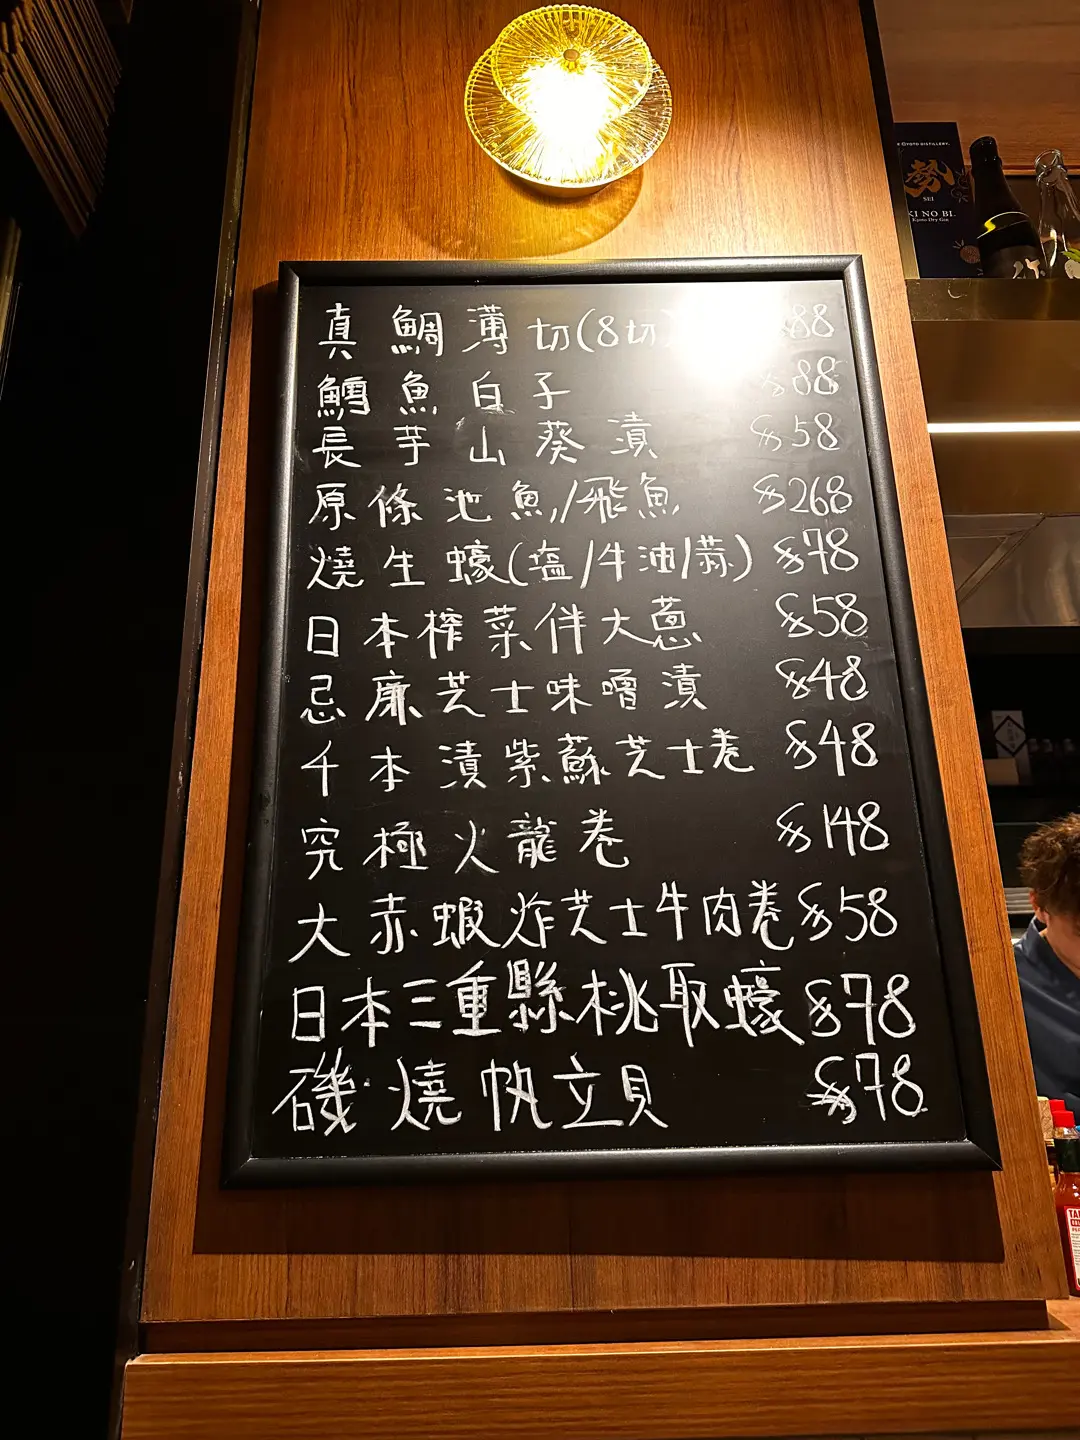 真鯛薄切(8切) $88
鱈魚白子 $88
長芋山葵漬 $58
原條池魚/飛魚 $268
燒生蠔(塩/牛油/蒜) $78
日本榨菜伴大蔥 $58
忌廉芝士味噌漬 $48
千本漬紫蘇芝士卷 $48
究極火龍卷 $148
大赤蝦炸芝士牛肉卷 $58
日本三重縣桃取蠔 $78
磯燒帆立貝 $78
KYOTO DISTILLERY
勢
SEI
KI NO BI
Kyoto Dry Gin